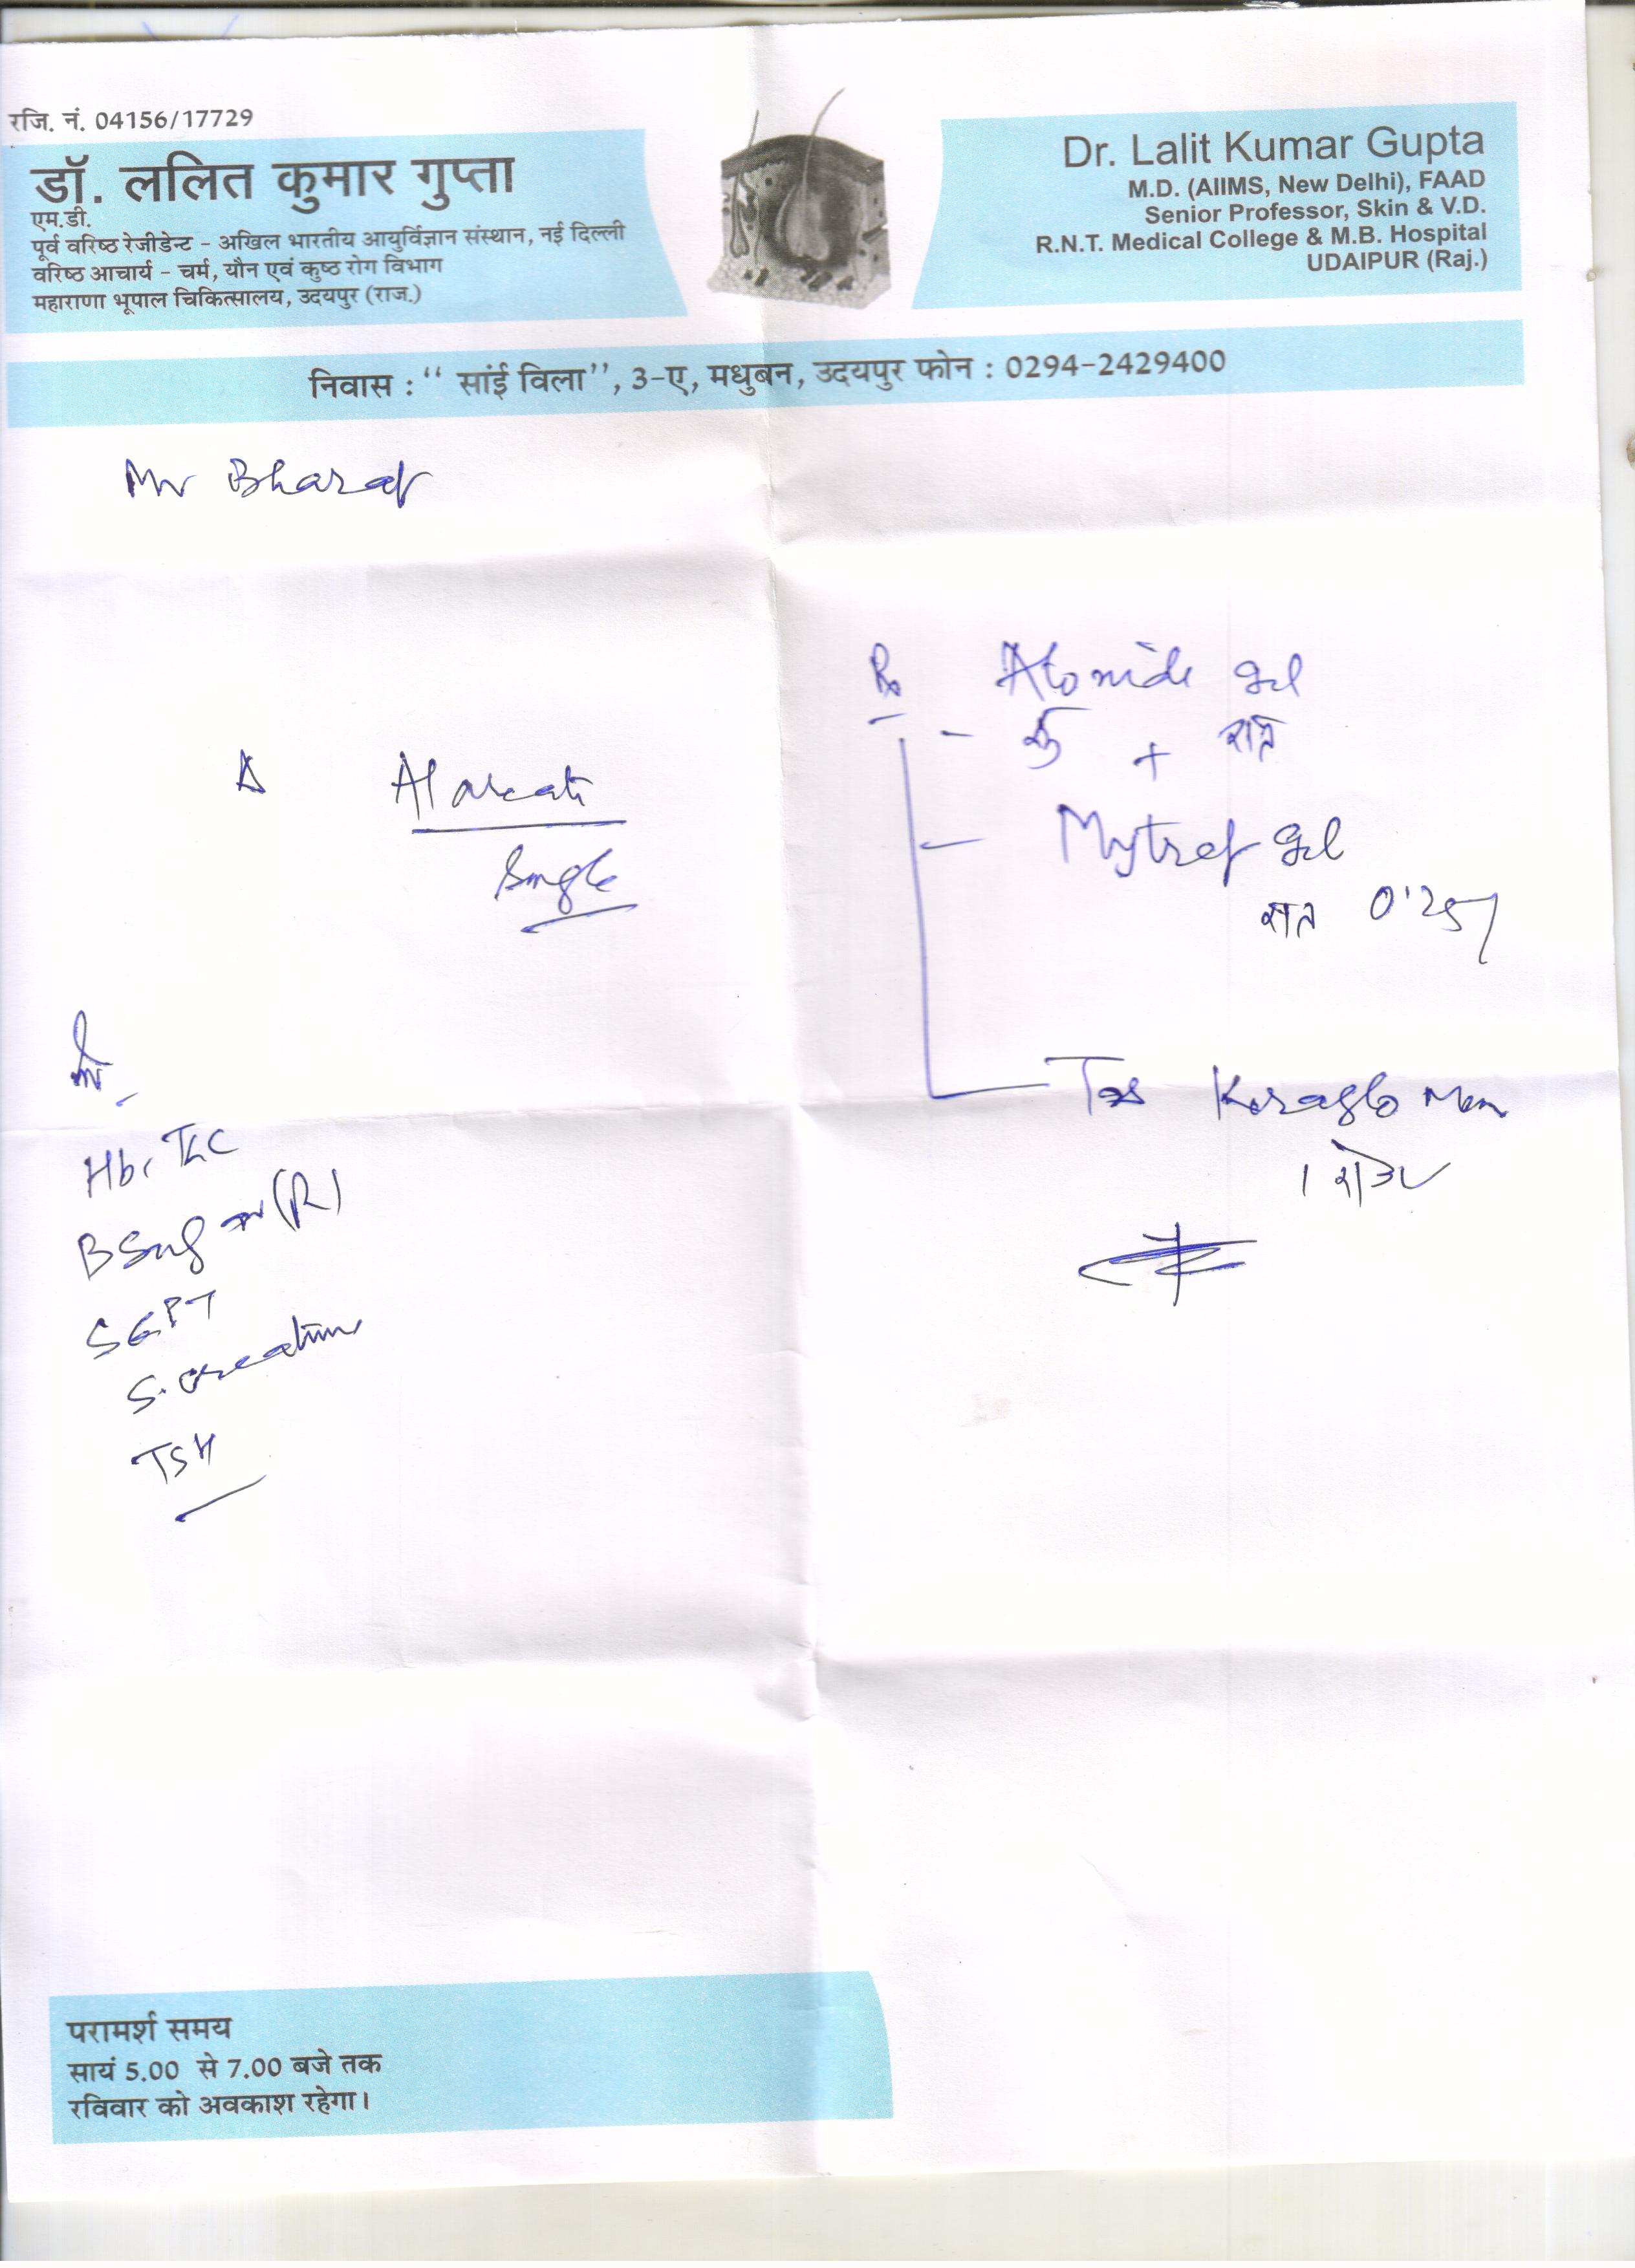 रजि. नं. 04156/17729
डॉ. ललित कुमार गुप्ता
एम.डी.
पूर्व वरिष्ठ रेजीडेन्ट - अखिल भारतीय आयुर्विज्ञान संस्थान, नई दिल्ली
वरिष्ठ आचार्य - चर्म, यौन एवं कुष्ठ रोग विभाग
महाराणा भूपाल चिकित्सालय, उदयपुर (राज.)
Dr. Lalit Kumar Gupta
M.D. (AIIMS, New Delhi), FAAD
Senior Professor, Skin & V.D.
R.N.T. Medical College & M.B. Hospital
UDAIPUR (Raj.)
निवास : “ सांई विला”, 3-ए, मधुबन, उदयपुर फोन : 0294-2429400
Mr Bharat
Δ Alopecia
Single
Hb, TLC
B Sugar (R)
SGPT
S. Creatinine
TSH
Rx
gel
+ रात
gel
रात 0.25%
Tab Keraglo Men
1 रोज
परामर्श समय
सायं 5.00 से 7.00 बजे तक
रविवार को अवकाश रहेगा।